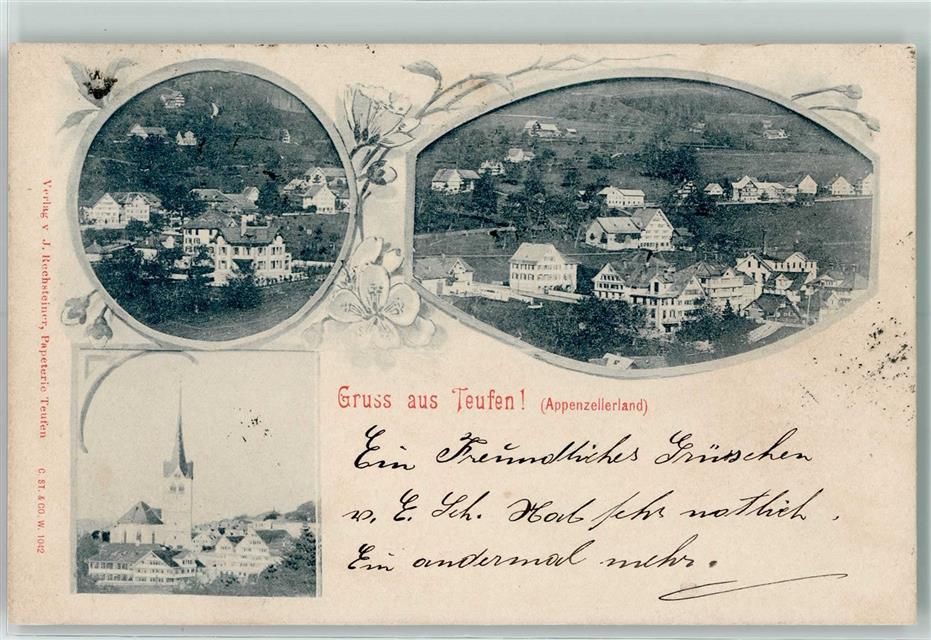 Gruss aus Teufen! (Appenzellerland)
Ein Freundliches Grüsschen
v. E. Sch. Hab sehr notlich.
Ein andermal mehr.
Verlag v. J. Rechsteiner, Papeterie Teufen
C. ST. & CO. W. 1042